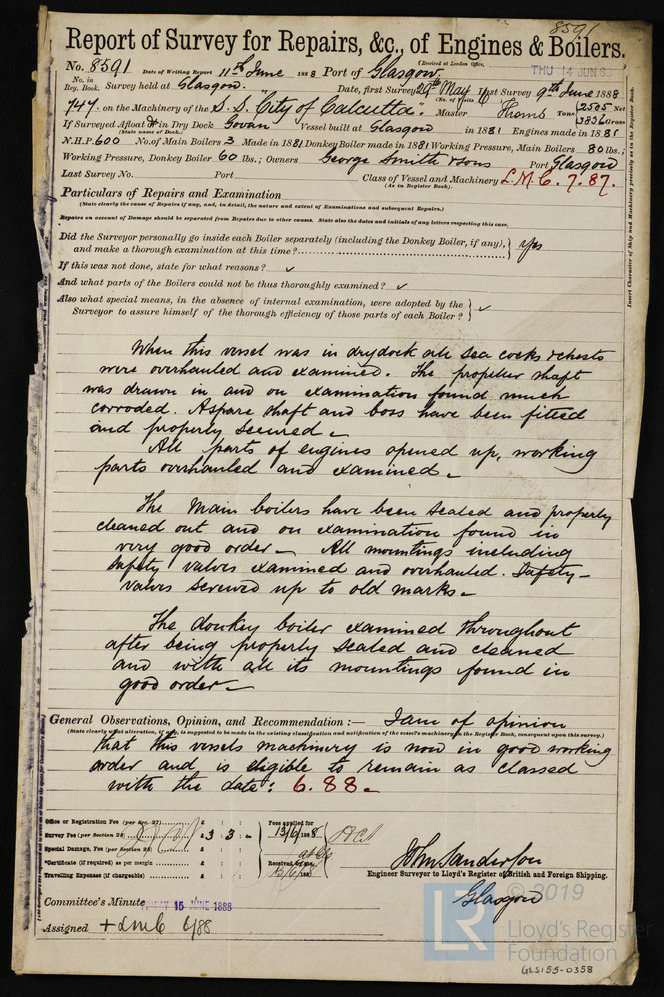 8591
Report of Survey for Repairs, &c., of Engines & Boilers.
(Received at London Office,
THU 14 JUN 8
No. 8591 Date of Writing Report 11th June 1888 Port of Glasgow
No. in Reg. Book. Survey held at Glasgow. Date, first Survey 29th May Last Survey 9th June 1888
(No. of Visits 6)
747. on the Machinery of the S.S. "City of Calcutta." Master Tons 2505 Net 3836 Gross
If Surveyed Afloat or in Dry Dock Govan Vessel built at Glasgow in 1881 Engines made in 1881
(State name of Dock.)
N.H.P. 600 No. of Main Boilers 3 Made in 1881 Donkey Boiler made in 1881 Working Pressure, Main Boilers 80 lbs.;
Working Pressure, Donkey Boiler 60 lbs.; Owners George Smith & Sons Port Glasgow
Last Survey No. Port Class of Vessel and Machinery L.M.C. 7.87.
(As in Register Book).
Particulars of Repairs and Examination
(State clearly the cause of Repairs if any, and, in detail, the nature and extent of Examinations and subsequent Repairs.)
Repairs on account of Damage should be separated from Repairs due to other causes. State also the dates and initials of any letters respecting this case.
Did the Surveyor personally go inside each Boiler separately (including the Donkey Boiler, if any), and make a thorough examination at this time? yes
If this was not done, state for what reasons? ✓
And what parts of the Boilers could not be thus thoroughly examined? ✓
Also what special means, in the absence of internal examination, were adopted by the
Surveyor to assure himself of the thorough efficiency of those parts of each Boiler? ✓
Insert Character of Ship and Machinery precisely as in the Register Book.
When this vessel was in drydock all sea cocks & chests
were overhauled and examined. The propeller shaft
was drawn in and on examination found much
corroded. A spare shaft and boss have been fitted
and properly secured.
All parts of engines opened up, working
parts overhauled and examined.
The Main boilers have been scaled and properly
cleaned out and on examination found in
very good order. All mountings including
safety valves examined and overhauled. Safety-
valves screwed up to old marks.
The donkey boiler examined throughout
after being properly scaled and cleaned
and with all its mountings found in
good order.
General Observations, Opinion, and Recommendation :— I am of opinion
(State clearly what alteration, if any, is suggested to be made in the existing classification and notification of the vessel's machinery in the Register Book, consequent upon this survey.)
that this vessels machinery is now in good working
order and is eligible to remain as classed
with the date: 6.88.
Office or Registration Fee (per Sec. 27) £ : :
Survey Fee (per Section 28) £ 3 : 3 :
Special Damage, Fee (per Section 28) £ : :
*Certificate (if required) as per margin £ : :
Travelling Expenses (if chargeable) £ : :
Fees applied for
13/6/1888
Received by me,
John Sanderson
Engineer Surveyor to Lloyd's Register of British and Foreign Shipping.
Glasgow
Committee's Minute 15 JUNE 1888
Assigned + LMC 6/88
© 2019
LR
Lloyd's Register
Foundation
GLS155-0358